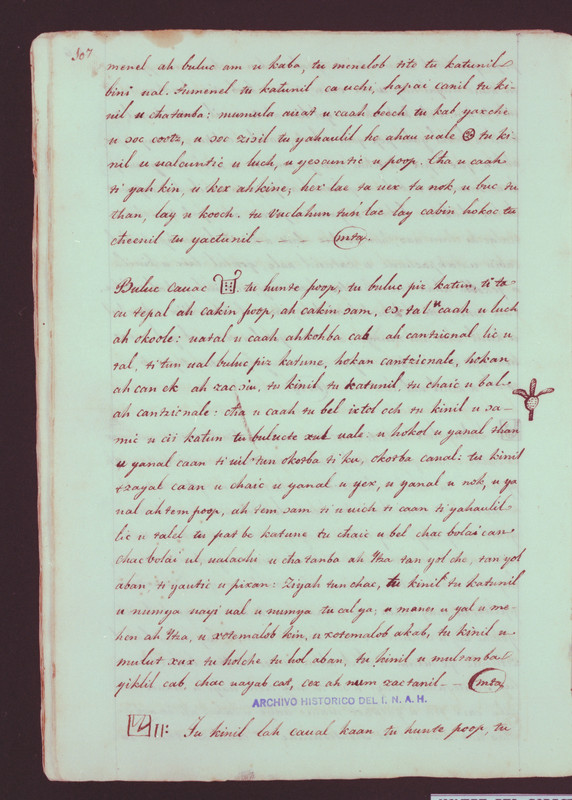 107
menel ah buluc am u kaba, tu menelob tite tu katunil
bini ual. tumenel tu katunil ca uchi, hapai canil tu ki-
nil u chatanba: munula auat u caah beech tu kab yaxche
u soc cootz, u soc zisil tu yahaulil he ahau uale tu ki-
nil u ualcuntic u luch, u yescuntic u poop. Cha u caah
ti yah kin, u kex ahkine; hex lae ta uex ta nok, u buc tu
than, lay u kooch. tu Vuclahun tun lae lay cabin hokoc tu
cheenil tu yactunil - - - mta.
Buluc cauac tu hunte poop, tu buluc piz katun, ti ta
cu tepal ah cakin poop, ah cakin sam, es tal u caah u luch
ah okoole: uatal u caah ahkohba cab ah cantzicnal lic u
tal, ti tun ual buluc piz katune, hokan cantzicnale, hokan
ah can ek ah zac siu, tu kinil tu katunil, tu chaic u bal-
ah cantzicnale: cha u caah tu bel ixtol och tu kinil u sa-
mic u cii katun tu bulucte xul uale: u hokol u yanal than
u yanal caan ti uil tun okotba ti ku, okotba canal: tu kinil
tzayal caan u chaic u yanal u yex, u yanal u nok, u ya
nal ah tem poop, ah tem sam ti u uich ti caan ti yahaulil
lic u talel tu pat be katune tu chaic u bel chac bolai can
chac bolai ul, ualachi u chatanba ah Ytza tan yol che, tan yol
aban ti yautic u pixan: Ziyah tun chac, tu kinil tu katunil
u numya uayi ual u numya tu cal ya; u manes u yal u me-
hen ah Ytza, u xotemalob kin, u xotemalob akab, tu kinil u
mulut xux tu holche tu hol aban, tu kinil u multanba
yiklil cab, chac uayab cat, cex ah num zactanil - - mta
ARCHIVO HISTORICO DEL I. N. A. H.
11: Tu kinil lah caual kaan tu hunte poop, tu